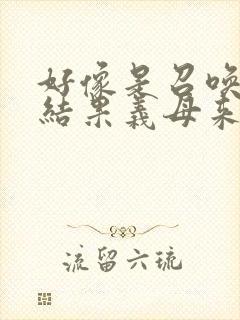 好像是召喚
結果義母來
流留六琉